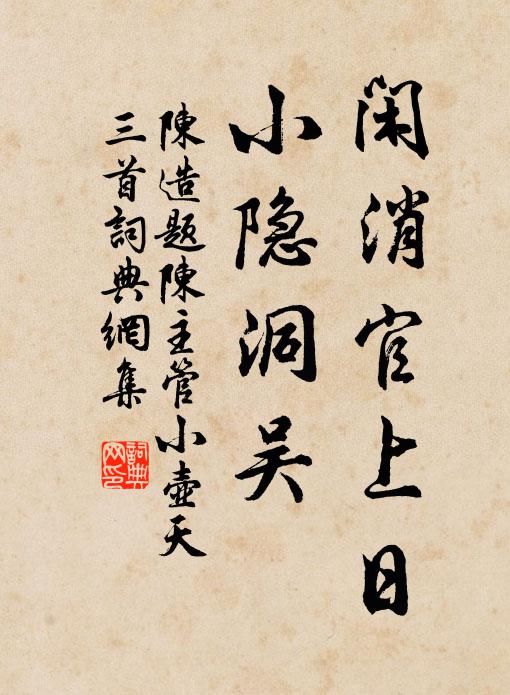 闲消官上日
小隐洞吴
陳造題陳主管小壺天
三首詞典網集
詞典
网印